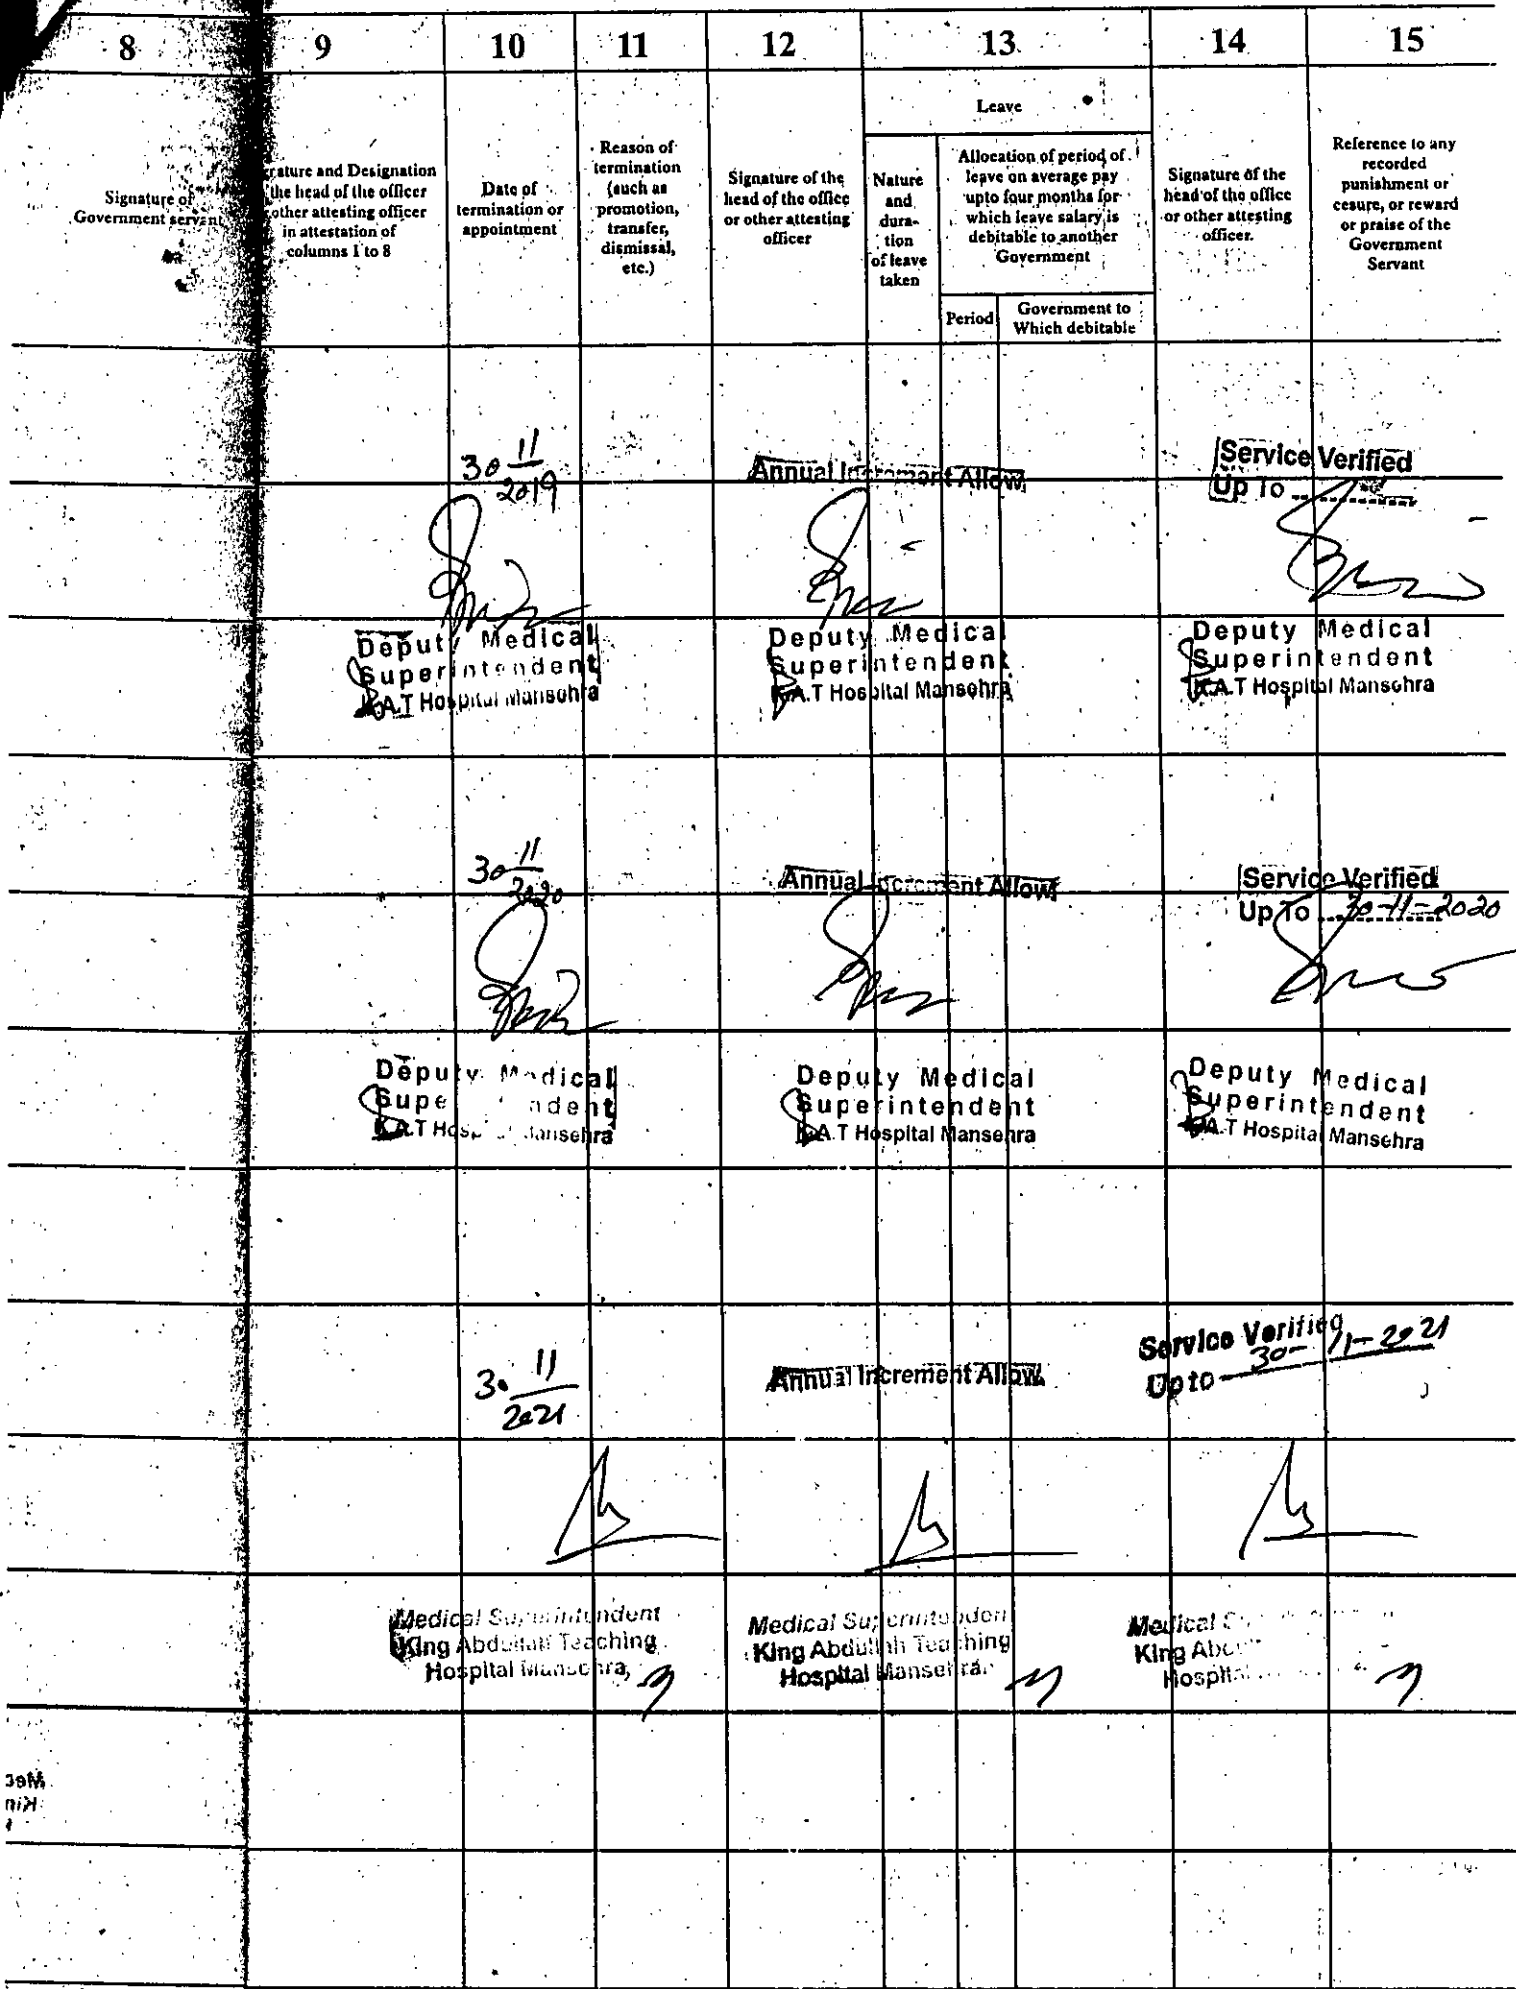 8 9 10 11 12 13 14 15
Leave
Signature of
Government servent
rature and Designation
the head of the officer
other attesting officer
in attestation of
columns 1 to 8
Date of
termination or
appointment
Reason of
termination
(such as
promotion,
transfer,
dismissal,
etc.)
Signature of the
head of the office
or other attesting
officer
Nature
and
dura-
tion
of leave
taken
Allocation of period of
leave on average pay
upto four months for
which leave salary is
debitable to another
Government
Period
Government to
Which debitable
Signature of the
head of the office
or other attesting
officer.
Reference to any
recorded
punishment or
cesure, or reward
or praise of the
Government
Servant
30 11
2019
Annual Increment Allow
Service Verified
Up To
Deputy Medical
Superintendent
K.A.T Hospital Mansehra
Deputy Medical
Superintendent
K.A.T Hospital Mansehra
Deputy Medical
Superintendent
K.A.T Hospital Mansehra
30 11
2020
Annual Increment Allow
Service Verified
Up To 30-11-2020
Deputy Medical
Supe ndent
K.A.T Hosp Mansehra
Deputy Medical
Superintendent
K.A.T Hospital Mansehra
Deputy Medical
Superintendent
K.A.T Hospital Mansehra
30 11
2021
Annual Increment Allow
Service Verified
Upto 30-11-2021
Medical Superintendent
King Abdullah Teaching
Hospital Mansehra
Medical Superintenden
King Abdullah Teaching
Hospital Mansehra
Medical S
King Abdu
Hospital